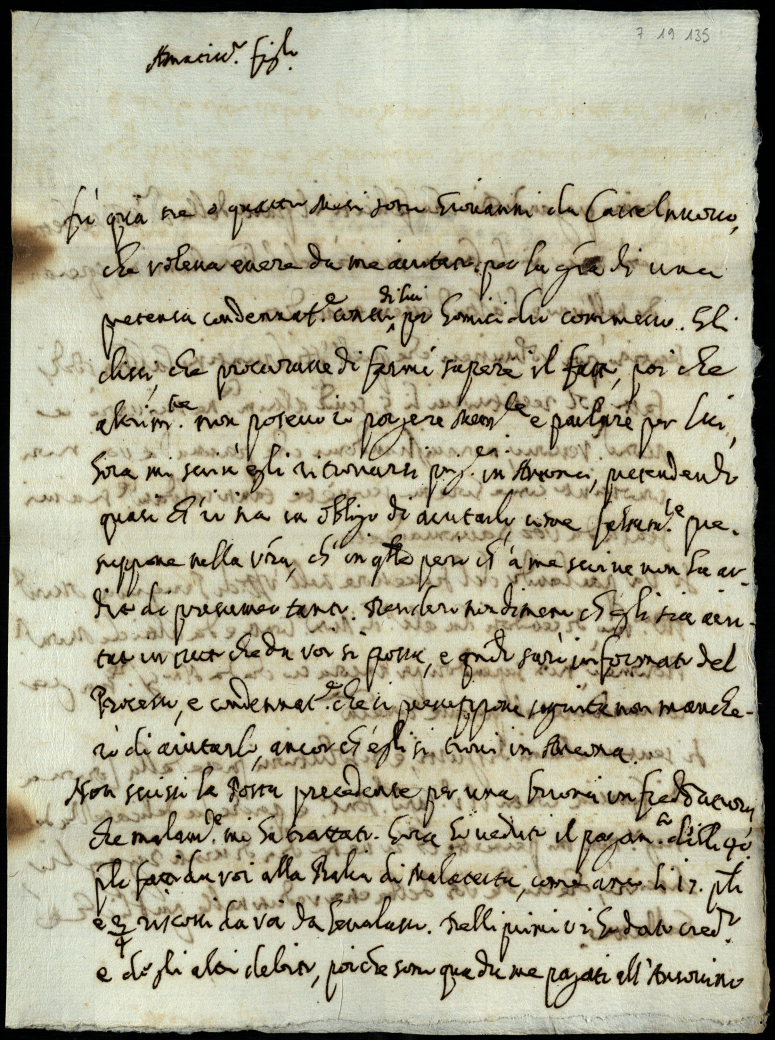 7 19 135
Amatiss.º figl.º
fù quà tre o quattro Mesi sono Giovanni da Castelnuovo,
che voleva essere da me aiutato per la gr̃a di una
pretensa condennat.e contro di lui per homicidio commesso. Gli
dissi, che procurasse di farmi sapere il fatto, poi che
altrim.te non potevo io porgere Mem.le e parlare per lui,
hora mi scrive egli ritrovarsi prig.e in Ancona, pretendendo
quasi ch'io sia in obligo di aiutarlo, come pre-
suppone nella vr̃a, ch'in q̃lla però ch'à me scrive non ha ar-
dito di presumer tanto. Attendero nondimeno ch'egli sia aiu-
tato in tutto che da voi si possa, e quãdo sarò informato del
Processo, e condennat.e che si presuppone seguita non manche-
rò di aiutarlo, ancor ch'egli si trovi in Ancona.
Non scrissi la Posta precedente per una buona infreddatura
che malam.te mi ha trattato. Hora hò veduto il pagam.to delli 40
pli fatto da voi alla Balia di Malatesta, come anco li 17. pli
e 3/4 riscossi da voi da . Delli primi vi hò dato cred.to
e degli altri debito, poiche sono qua da me pagati all'